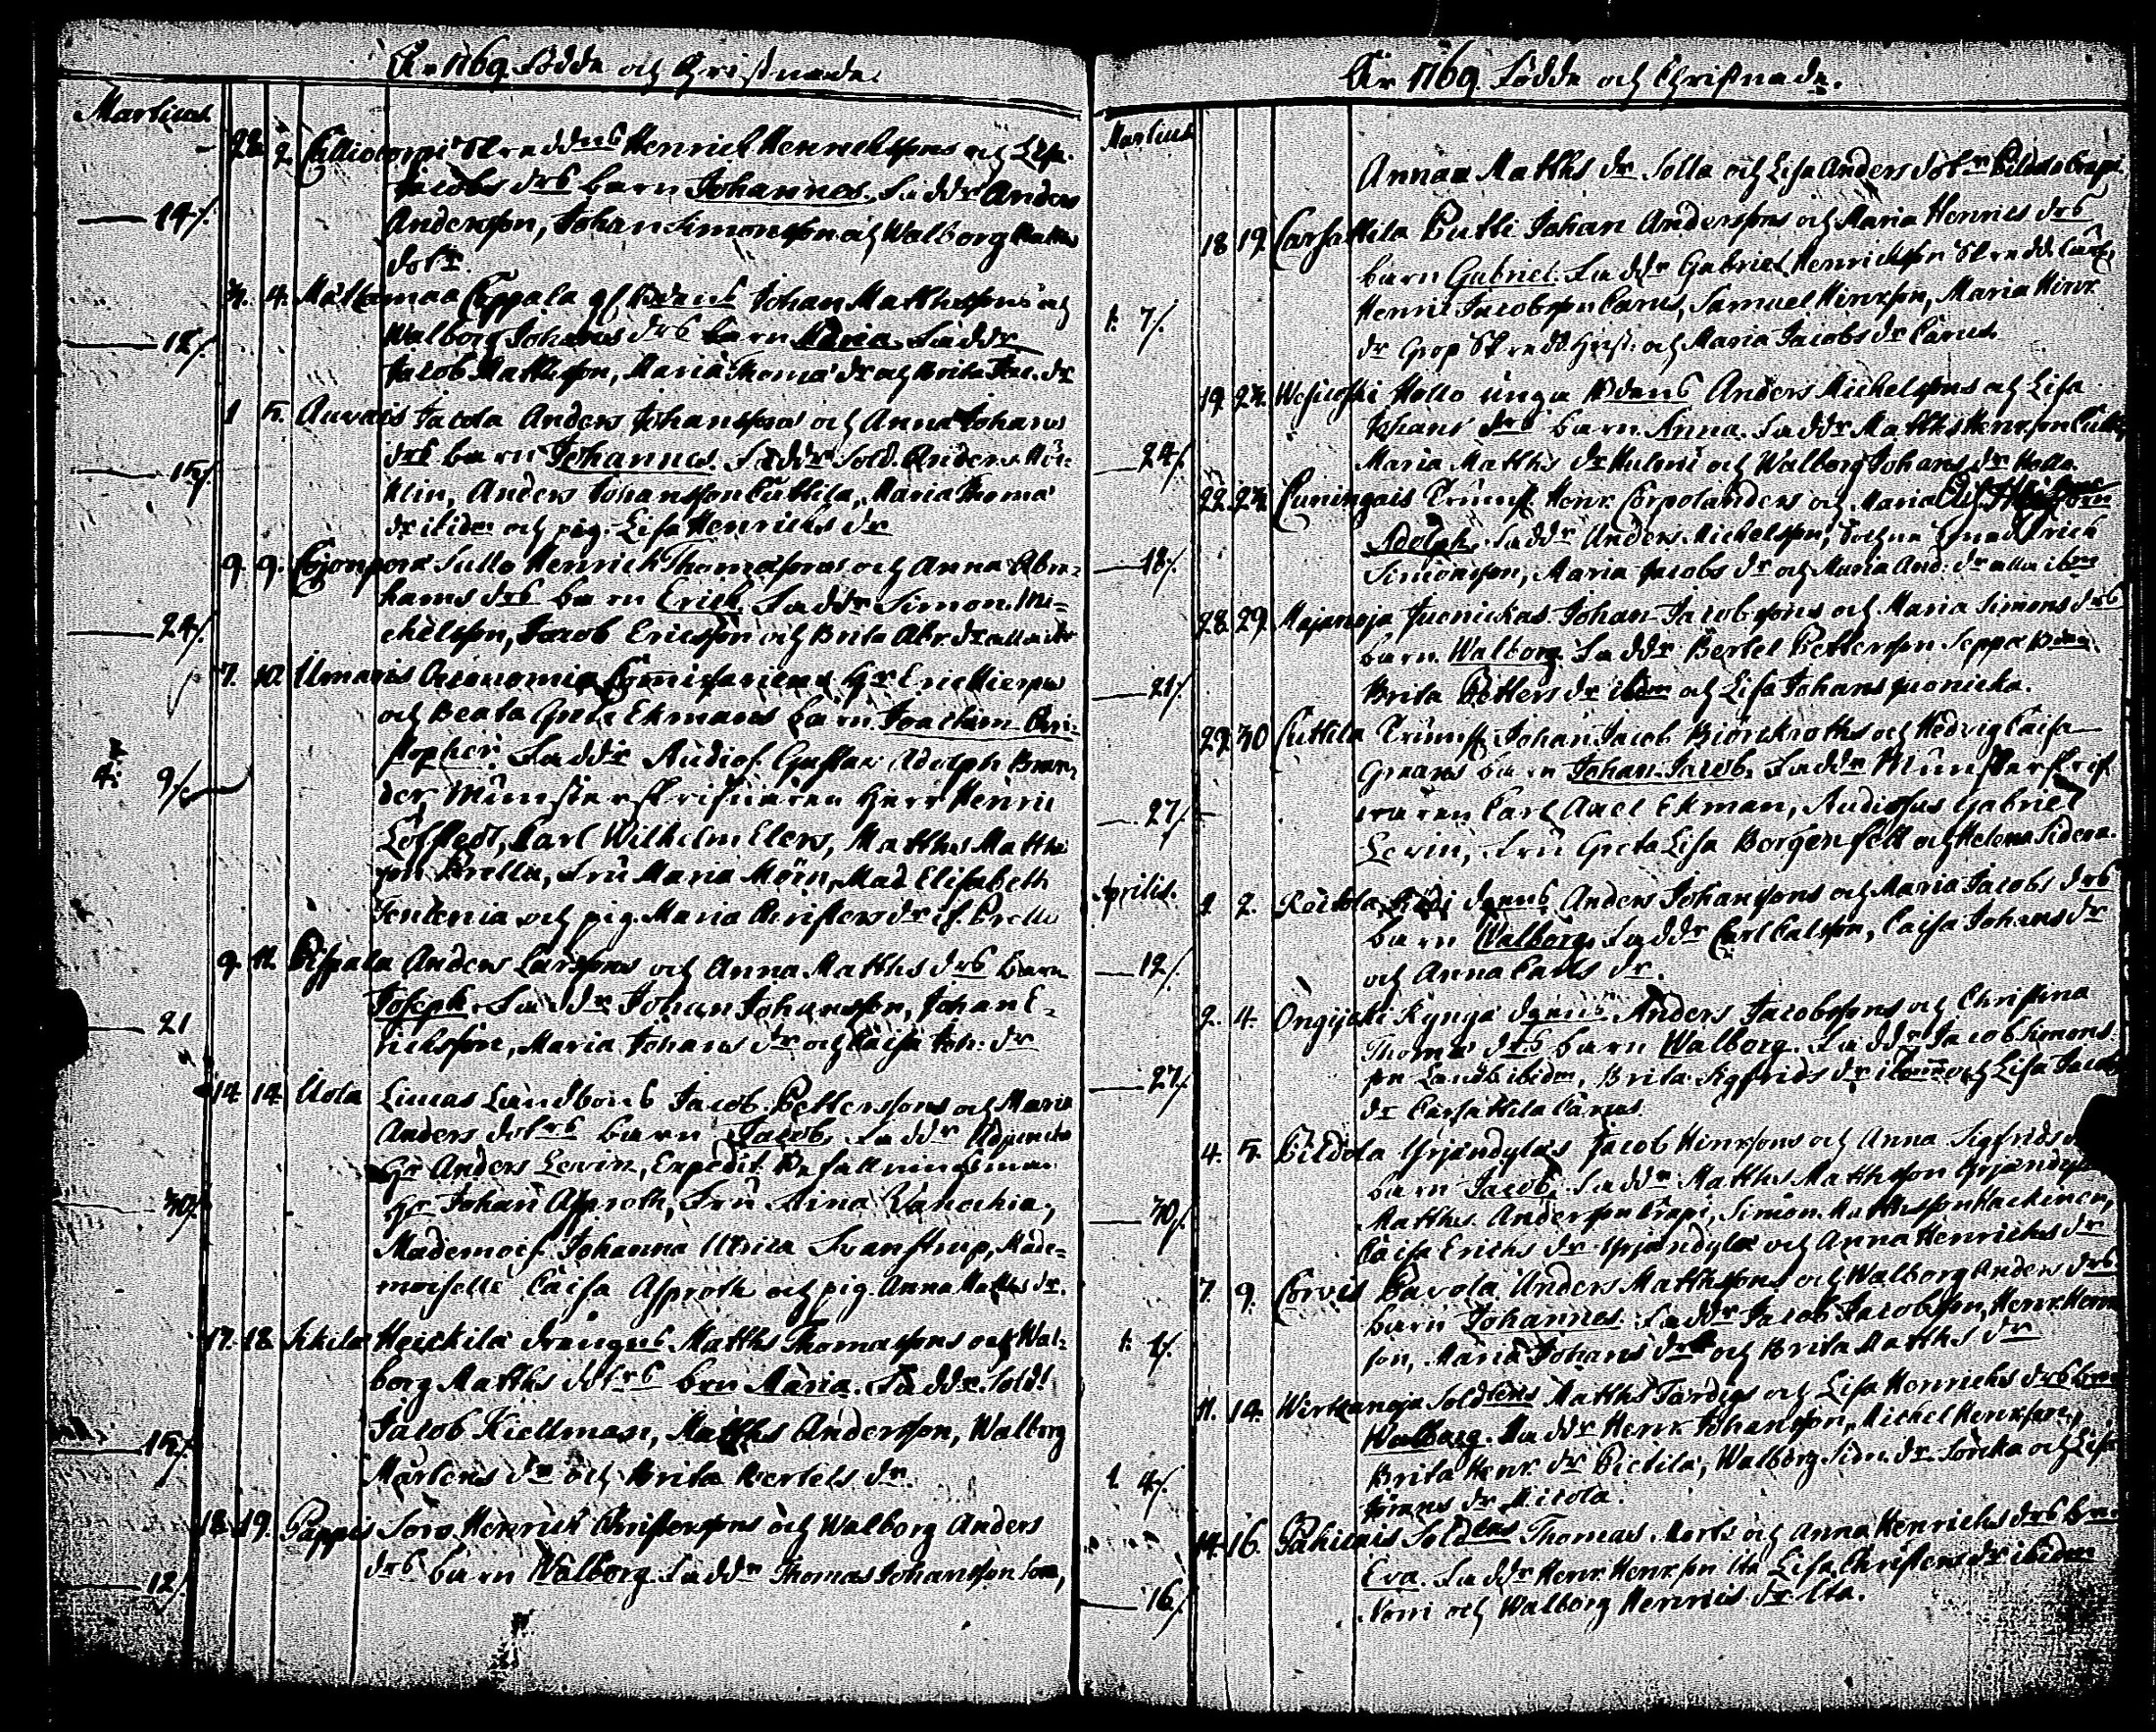 År 1769. Födde och Christnade.
Martius
28. 2. Calliotorpi Skreddns Henrich Henrichssons och Lisa
Jacobs drs barn Johannes. Faddr Anders
14/. Andersson, Johan Simonsson och Walborg Matths
dotr.
3. 4. Mattamaa Cappala gl. Bdens Johan Matthssons och
12/. Walborg Johans drs barn Maria. Faddr
Jacob Matthsson, Maria Thomæ dr och Brita Jac. dr
1 5. Auvais Jacola Anders Johanssons och Anna Johans
drs barn Johannes. Faddr Sold. Anders
15/. klin, Anders Johansson Cuttila, Maria Thomæ
dr ibidm och pig. Lisa Henrichs dr
9. 9. Sullo Henrich Thomæsons och Anna Abra-
hams drs barn Erich. Faddr Simon Mi-
24/. chelsson, Jacob Ericsson och Brita Abr. dr
7. 10. Umaris Oeconomiæ Commissariens Hr Eric Hierpes
och Beata Greta Ekmans barn Joachim Chri-
stopher. Faddr Audit. Gustav Adolph Bran-
4: 9/. der, Munsterskrifvaren Herr Henric
Löfstedt, Carl Wilhelm Elers, Matths Matths
son Prella, Fru Maria Möin, Mad. Elisabeth
Tentenia och pig. Maria Christers dr if. Prella
9. 11. Pispala Anders Larssons och Anna Matths drs barn
Joseph. Faddr Johan Johansson, Johan E-
21 richsson, Maria Johans dr och Caisa Joh. dr
14. 14. Uola Lucas Landbons Jacob Pettersons och Maria
Anders dotrs barn Jacob. Faddr Adjuncten
Hr Anders Lewin, Expedit. Befallningsman
30/. Hr Johan Asproth, Fru Stina
Mademois. Johanna Ulrica Svanström, Made-
moiselle Caisa Asproth och pig. Anna Matths dr.
17. 18. Sikilä Heickilä drängns Matths Thomassons och Wal-
borg Matths dotrs brn Maria. Faddr. Sold.
Jacob Kiellman, Matths Andersson, Walborg
15/. Mårtens dr och Brita Bertels dr.
18. 19. Pappis Soro Henrich Christerssons och Walborg Anders
drs barn Walborg. Faddr Thomas Johansson
12/.
År 1769. Födde och Christnade.
Martius
Anna Matths dr Solla och Lisa Anders dotr
18 19 Carsattila Putli Johan Anderssons och Maria Henrics drs
barn Gabriel. Faddr Gabriel Henrichson Skredd.
1. 7/. Henric Jacobsson Carus, Samuel Hinrson, Maria Hinr.
dr och Maria Jacobs dr Carus
19. 24. Hollo unga Bdens Anders Michelssons och Lisa
Johans drs barn Anna. Faddr Matths Henrson
24/. Maria Matths dr och Walborg Johans dr Hollo.
22. 24. Cuningais Trumsl. Henr. Corpolanders och Maria
Adolph. Faddr Anders Michelsson, Erich
18/. Simonsson, Maria Jacobs dr och Maria And. dr alla ibm
28. 29. Majanoja Juonickas Johan Jacobsons och Maria Simons drs
barn Walborg. Faddr Bertel Pettersson Seppä
21/. Brita Petters dr ibm och Lisa Johans Juonicka.
29. 30 Cuttila Trumsl. Johan Jacob Biörckroths och Hedvig Caisa
Gmans barn Johan Jacob. Faddr Munsterskrif
varen Carl Axel Ekman, Studiosus Gabriel
27/. Levin, Fru Greta Lisa Borgenfelt och Helena
Aprilis.
1. 2. dgens Anders Johanssons och Maria Jacobs drs
barn Walborg. Faddr Carl Calsson, Caisa Johans dr
12/. och Anna Carls dr.
2. 4. Ongijoki Rynga dgens Anders Jacobssons och Christina
Thomas drs barn Walborg. Faddr Jacob Simons
27/. son Landb. ibidm, Brita Sigfrids dr ibm och Lisa Jacobs
dr Carsattila Carus.
4. 5. Pildola Yrjändylas Jacob Hinrsons och Anna Sigfrids
barn Jacob. Faddr Matths Matthsson Yrjändylä
30/. Matths Andersson Crapi, Simon Matthsson Hackinen,
Caisa Erichs dr Yrjändylä och Anna Henrichs dr
7. 9. Corvis Pavola Anders Matthssons och Walborg Anders drs
barn Johannes. Faddr Jacob Jacobsson, Henr. Henr
1. 1/. son, Maria Johans dr och Brita Matths dr
11. 14. Wirtzanoja Soldtens Matths Färdigs och Lisa Henrichs drs brn
Walborg. Faddr Henr. Johansson, Michel Henrson,
1. 4/. Brita Henr. dr Pietilä, Walborg Sim. dr och Lisa
Jörans dr Micola.
14. 16. Pahicais Soldtens Thomas Morts och Anna Henrichs drs brn
Eva. Faddr Henr. Henrson Ita Lisa Christers dr ibidm
16/. Tomi och Walborg Henrics dr Ita.